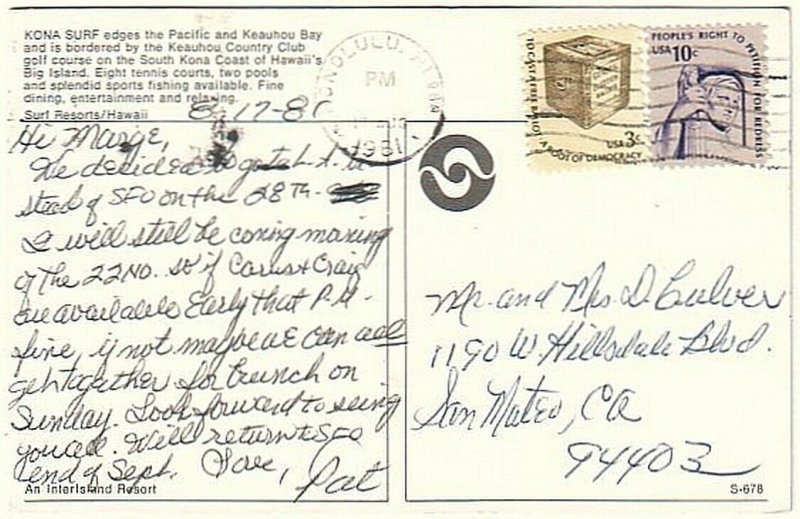 KONA SURF edges the Pacific and Keauhou Bay
and is bordered by the Keauhou Country Club
golf course on the South Kona Coast of Hawaii's
Big Island. Eight tennis courts, two pools
and splendid sports fishing available. Fine
dining, entertainment and relaxing.
Surf Resorts/Hawaii
8-17-81
Hi Marge,
We decided to go to L.A. in
stead of SFO on the 28th.
I will still be coming morning
of the 22ND. so if Carus & Craig
are available early that P.M.
fine, if not maybe we can all
get together for brunch on
Sunday. Look forward to seeing
you all. Will return to SFO
end of Sept. Love,
Pat
An InterIsland Resort
HONOLULU, HI
PM
1981
USA 3c
A ROOT OF DEMOCRACY
PEOPLE'S RIGHT TO PETITION FOR REDRESS
USA 10c
Mr. and Mrs. D. Culver
1190 W. Hillsdale Blvd.
San Mateo, CA
94403
S-678